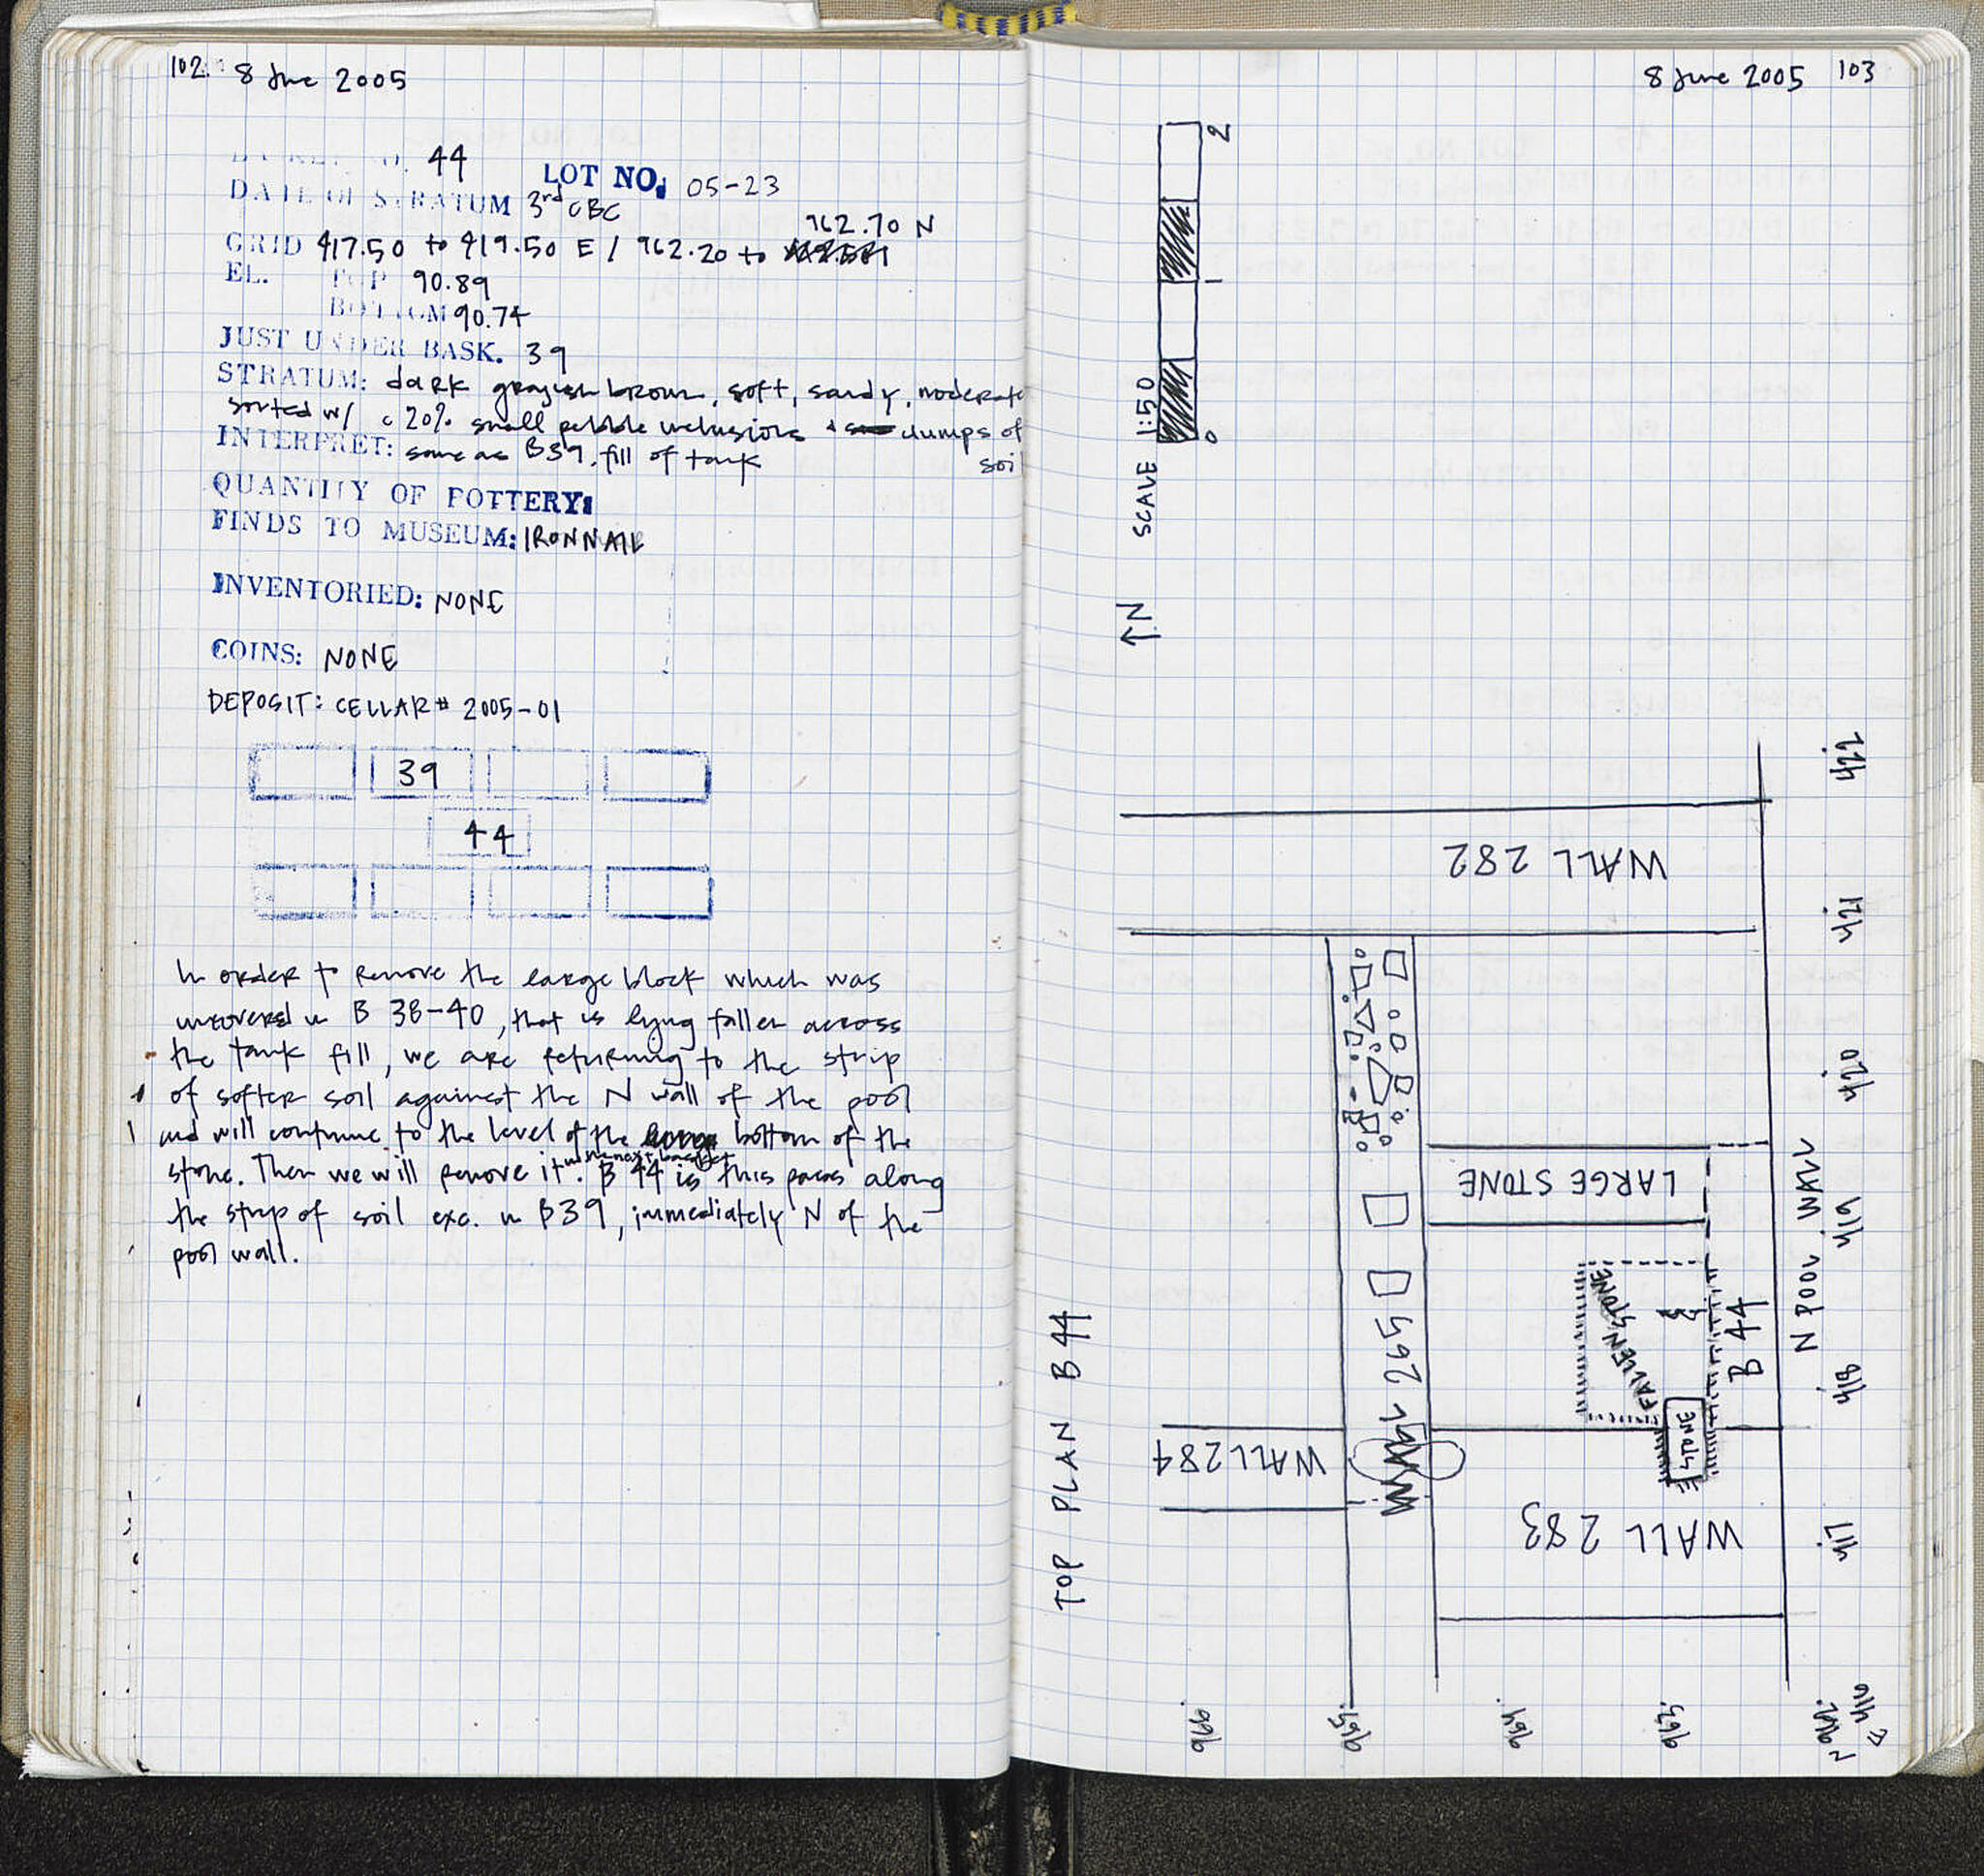 102. 8 June 2005
BASKET NO. 44
LOT NO. 05-23
DATE OF STRATUM 3rd c BC
962.70 N
GRID 417.50 to 419.50 E / 962.20 to
EL. TOP 90.89
BOTTOM 90.74
JUST UNDER BASK. 39
STRATUM: dark grayish brown, soft, sandy, moderate
sorted w/ c 20% small pebble inclusions + clumps of
soil
INTERPRET: same as B39, fill of tank
QUANTITY OF POTTERY:
FINDS TO MUSEUM: IRON NAIL
INVENTORIED: NONE
COINS: NONE
DEPOSIT: CELLAR # 2005-01
39
44
In order to remove the large block which was
uncovered in B 38-40, that is lying fallen across
the tank fill, we are returning to the strip
of softer soil against the N wall of the pool
and will continue to the level of the bottom of the
stone. Then we will remove it in the next basket. B 44 is this pass along
the strip of soil exc. in B39, immediately N of the
pool wall.
8 June 2005 103
TOP PLAN B 44
↑N SCALE 1:50
0 1 2
WALL 282
LARGE STONE
WALL 265
FALLEN STONE
STONE
B 44
N POOL WALL
WALL 284
WALL 283
422
421
420
419
418
417
E 416
966.
965.
964.
963.
N 962.